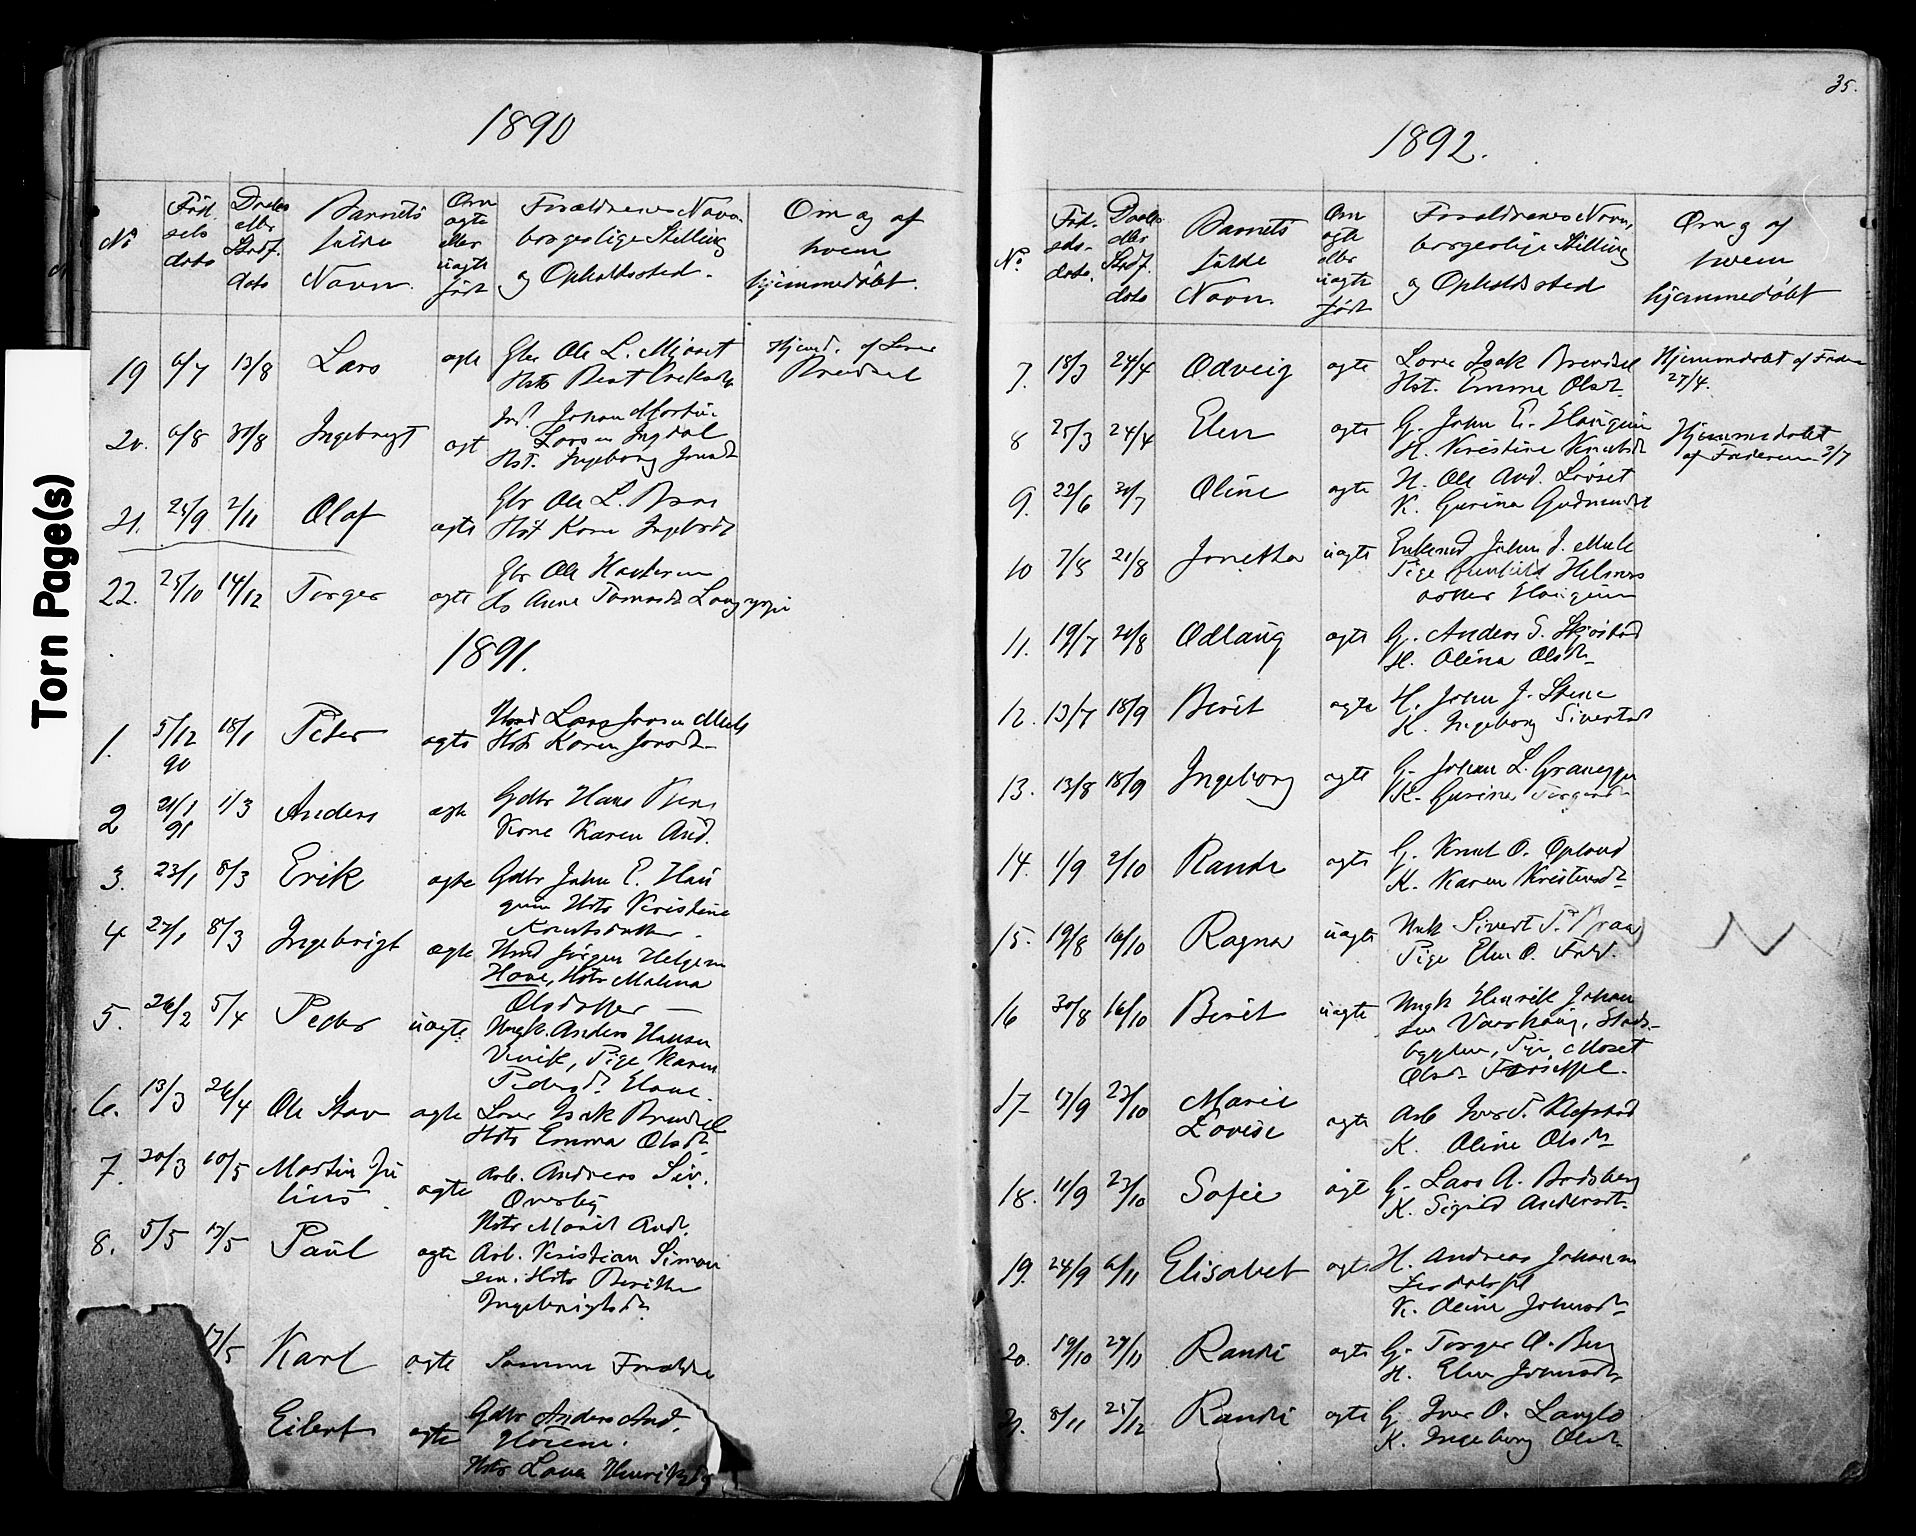 Torn Page(s)
1890
No
Fød-
sels
dato
Daabs
eller
Stadf.
dato
Barnets
fulde
Navn.
Om
ægte
eller
uægte
født
Forældrenes Navn,
borgerlige Stilling
og Opholdssted.
Om og af
hvem
hjemmedøbt.
19 6/7 13/8 Lars ægte Gbr Ole L. Mjøset
Hst Berit Eriksdt
Hjemd. af Lærer
Bredsel
20. 6/8 31/8 Ingebrigt ægt Johan Martin
Larsen Ingdal
Hst. Ingeborg Jonsdt
21. 25/9 2/11 Olaf ægte Gbr Ole L.
Hst Karn Ingebrdt
22. 25/10 14/12 Torger ægte Gbr Ole
Hs Anne Tomasdt
1891.
1. 5/12 90 18/1 Peter ægte Hmd Lars Jonsen Mæle
Hst Karen Jonsdt
2 21/1 91 1/3 Anders ægte Gdbr Hans
Kone Karen And.
3. 23/1 8/3 Erik ægte Gdbr John E. Hau
gum Hstr Kristine
Knutsdatter.
4 27/1 8/3 Ingebrigt ægte Hmd Jørgen Helgesen
Hove, Hstr Malena
Olsdatter
5. 26/2 5/4 Peder uægte Ungk. Anders Hansen
Pige Karen
Pedersdt.
6. 13/3 26/4 Ole Stav ægte Lærer Isak Bredsel
Hstr Emma Olsdt
7. 20/3 10/5 Martin Ju
lius ægte Arb. Andreas Siv.
Overby
Hstr Marit And.
8. 5/5 17/5 Paul ægte Arb. Kristian Simon
sen. Hstr Berithe
Ingebrigtsdt.
17/5 Karl ægte Samme Forældre
Eilert ægte Gdbr Anders And.
Hstr Lava Henriksdt
35.
1892.
No.
Fød-
sels-
dato.
Daabs-
eller
Stadf.
dato
Barnets
fulde
Navn.
Om
ægte
eller
uægte
født
Forældrenes Navn,
borgerlige Stilling
og Opholdssted
Om og af
hvem
hjemmedøbt
7. 18/3 24/4 Odveig ægte Lærer Isak Bredsel
Hst. Emma Olsdt.
Hjemmedøbt af Faderen
27/4.
8 25/3 24/4 Elen ægte G. John E. Haugum
H. Kristine Knutsdt
Hjemmedøbt
af Faderen 3/7
9. 22/6 31/7 Oline ægte H. Ole And. Løvset
K. Gurina Gudmundsdt
10 7/5 21/8 Jonetta uægte Enkemd John J. Mæle
Pige Gunhild Helmers
datter Haugum
11. 19/7 21/8 Odlaug ægte G. Anders S. Skjøstad
H. Olina Olsdt
12. 13/7 18/9 Berit ægte H. John J. Stene
K. Ingeborg Sivertsdt
13. 13/8 18/9 Ingeborg ægte G. Johan L.
K. Gurine Torgersdt
14. 1/9 2/10 Randi ægte G. Knut O. Opland
K. Karen Kristensdt
15. 19/8 16/10 Ragna uægte Ungk Sivert P.
Pige Elen O.
16 30/8 16/10 Berit uægte Ungk Henrik Johan
sen Varshaug, Stads-
bygden, Pige Moset
Olsdt
17 17/9 23/10 Marie
Lovise ægte Arb Iver P. Klefstad
K. Oline Olsdt
18. 11/9 23/10 Sofie ægte G. Lars A.
K. Sigrid Andersdt.
19. 24/9 6/11 Elisabet ægte H. Andreas Johansen
K. Oline Johnsdt
20. 19/10 27/11 Randi ægte G. Torger O. Berg
H. Elen Johnsdt
21. 8/11 25/12 Randi ægte G. Iver O. Langlo
K. Ingeborg Olsdt.